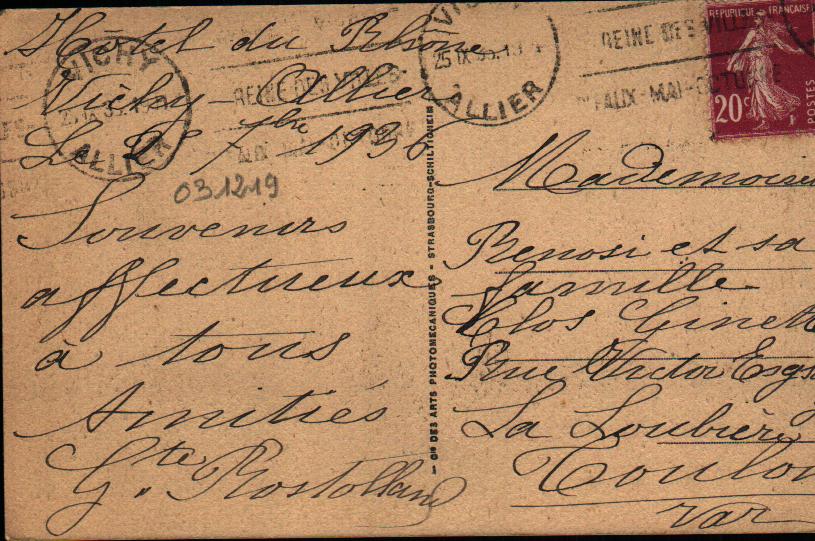 Hôtel du Rhône
Vichy - Allier
Le 25 7bre 1936
031219
Souvenirs
affectueux
à tous
Amitiés
Gte Rostolland
VICHY
ALLIER
REINE DES VILLES
D'EAUX-MAI-OCTOBRE
VICHY
25 IX 36
ALLIER
REINE DES VILLES
D'EAUX-MAI-OCTOBRE
REPUBLIQUE FRANÇAISE
20c
POSTES
— Cie DES ARTS PHOTOMECANIQUES - STRASBOURG-SCHILTIGHEIM —
Mademoisel
Renosi et sa
famille
Clos Ginett
Rue Victor
La Loubière
Toulon
Var